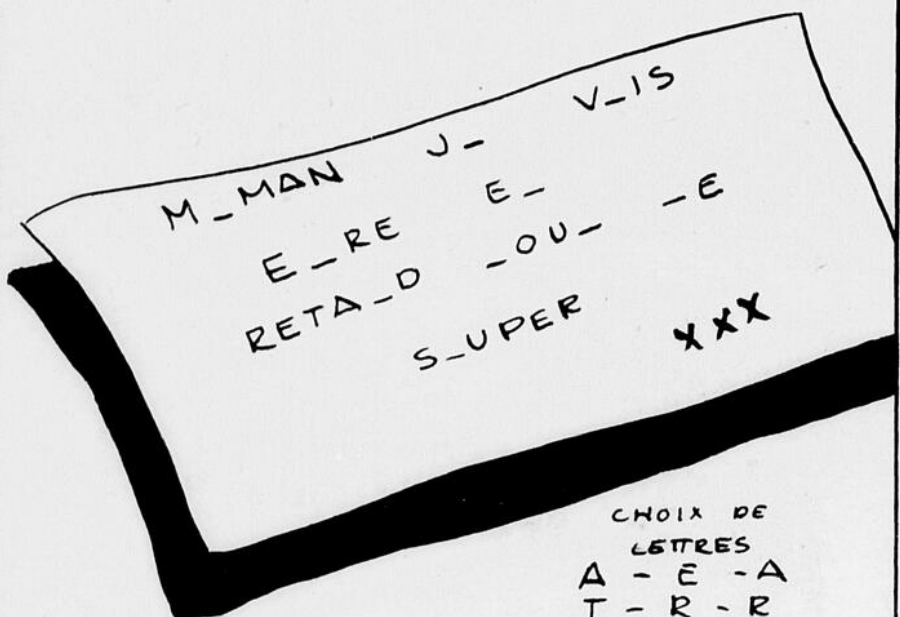 M_MAN J_ V_IS
E_RE E_
RETA_D _OU_ _E
S_UPER XXX
CHOIX DE
LETTRES
A - E - A
T - R - R